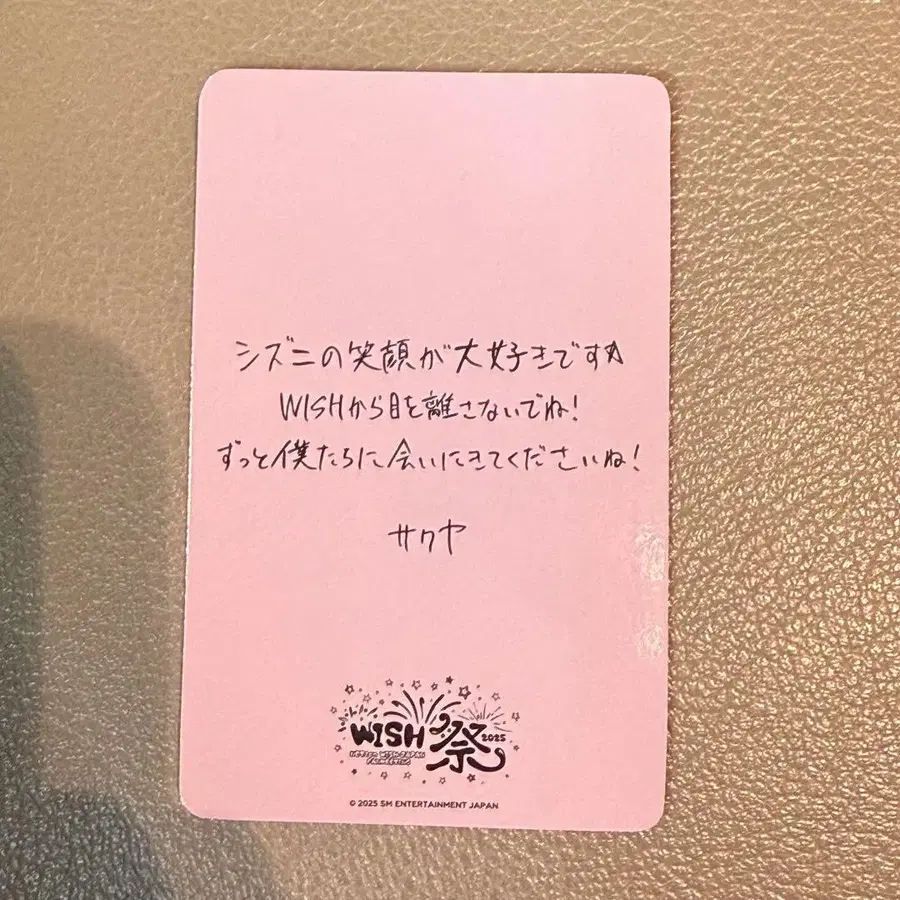 シズニの笑顔が大好きです☆
WISHから目を離さないでね!
ずっと僕たちに会いにきてくださいね!
サクヤ
WISH祭 2025
NCT WISH JAPAN
FANMEETING
© 2025 SM ENTERTAINMENT JAPAN